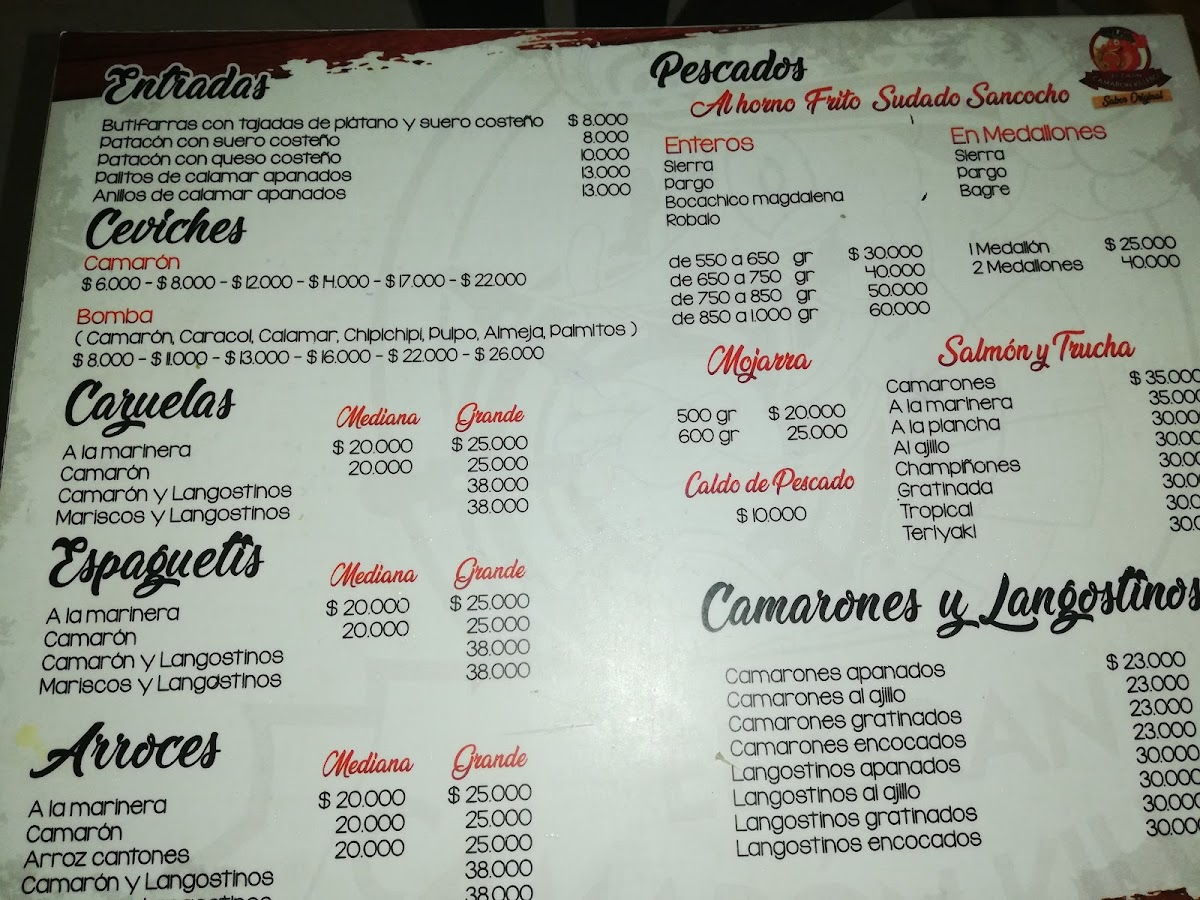 Entradas
Butifarras con tajadas de plátano y suero costeño $ 8.000
Patacón con suero costeño 8.000
Patacón con queso costeño 10.000
Palitos de calamar apanados 13.000
Anillos de calamar apanados 13.000
Ceviches
Camarón
$ 6.000 - $ 8.000 - $ 12.000 - $ 14.000 - $ 17.000 - $ 22.000
Bomba
( Camarón, Caracol, Calamar, Chipichipi, Pulpo, Almeja, Palmitos )
$ 8.000 - $ 11.000 - $ 13.000 - $ 16.000 - $ 22.000 - $ 26.000
Cazuelas Mediana Grande
A la marinera $ 20.000 $ 25.000
Camarón 20.000 25.000
Camarón y Langostinos 38.000
Mariscos y Langostinos 38.000
Espaguetis Mediana Grande
A la marinera $ 20.000 $ 25.000
Camarón 20.000 25.000
Camarón y Langostinos 38.000
Mariscos y Langostinos 38.000
Arroces Mediana Grande
A la marinera $ 20.000 $ 25.000
Camarón 20.000 25.000
Arroz cantones 20.000 25.000
Camarón y Langostinos 38.000
38.000
Pescados
Al horno Frito Sudado Sancocho
Sabor Original
Enteros
Sierra
Pargo
Bocachico magdalena
Robalo
de 550 a 650 gr $ 30.000
de 650 a 750 gr 40.000
de 750 a 850 gr 50.000
de 850 a 1.000 gr 60.000
En Medallones
Sierra
Pargo
Bagre
1 Medallón $ 25.000
2 Medallones 40.000
Mojarra
500 gr $ 20.000
600 gr 25.000
Caldo de Pescado
$ 10.000
Salmón y Trucha
Camarones $ 35.000
A la marinera 35.000
A la plancha 30.000
Al ajillo 30.00
Champiñones 30.00
Gratinada 30.00
Tropical 30.0
Teriyaki 30.0
Camarones y Langostinos
Camarones apanados $ 23.000
Camarones al ajillo 23.000
Camarones gratinados 23.000
Camarones encocados 23.000
Langostinos apanados 30.000
Langostinos al ajillo 30.000
Langostinos gratinados 30.000
Langostinos encocados 30.00